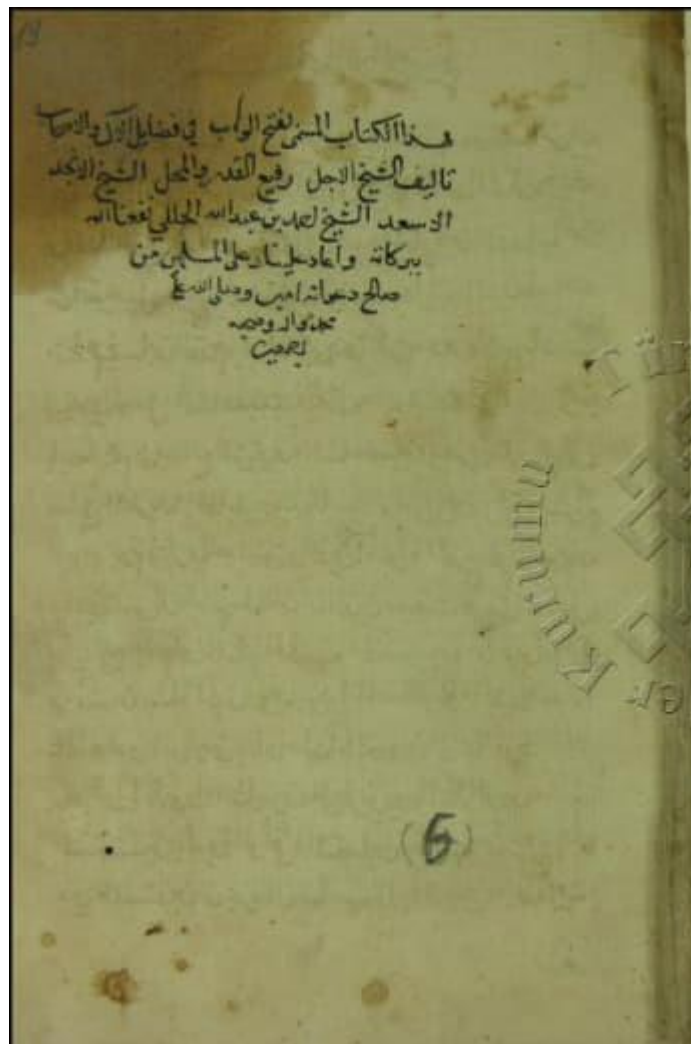 19
هذا الكتاب المسمى بفتح الوهاب في فضايل الآل والاصحاب
تاليف الشيخ الاجل رفيع القدر والمحل الشيخ الامجد
الاسعد الشيخ احمد بن عبد الله نفعنا الله
ببركاته واعاد علينا وعلى المسلمين من
صالح دعواته امين وصلى الله على
محمد واله وصحبه
اجمعين
(6)